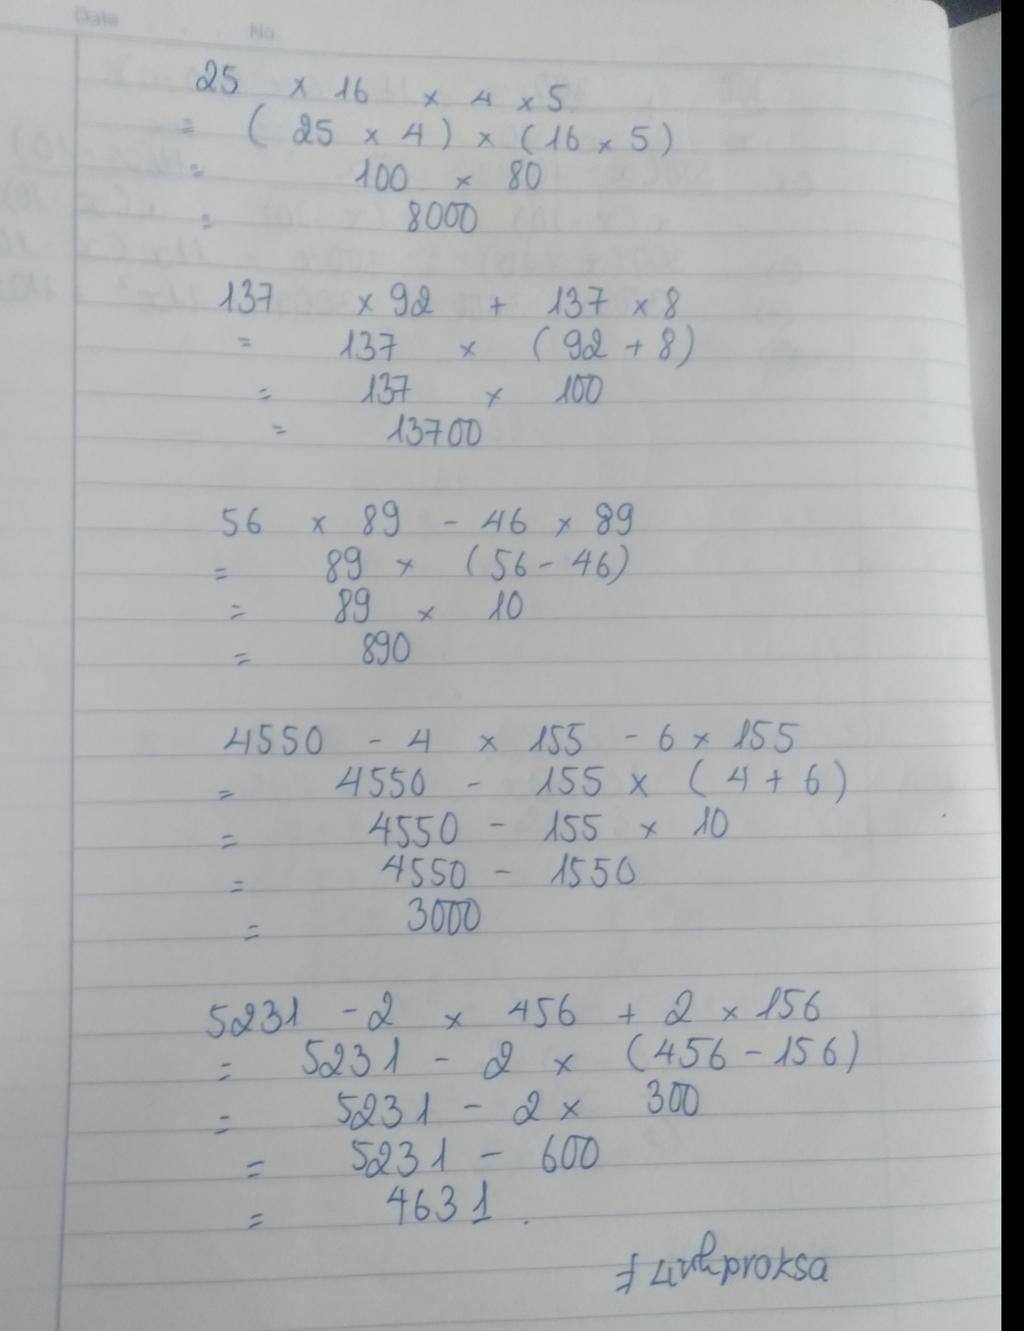 Date
No
25 × 16 × 4 × 5
= ( 25 × 4 ) × ( 16 × 5 )
= 100 × 80
= 8000
137 × 92 + 137 × 8
= 137 × ( 92 + 8 )
= 137 × 100
= 13700
56 × 89 - 46 × 89
= 89 × ( 56 - 46 )
= 89 × 10
= 890
4550 - 4 × 155 - 6 × 155
= 4550 - 155 × ( 4 + 6 )
= 4550 - 155 × 10
= 4550 - 1550
= 3000
5231 - 2 × 456 + 2 × 156
= 5231 - 2 × ( 456 - 156 )
= 5231 - 2 × 300
= 5231 - 600
= 4631.